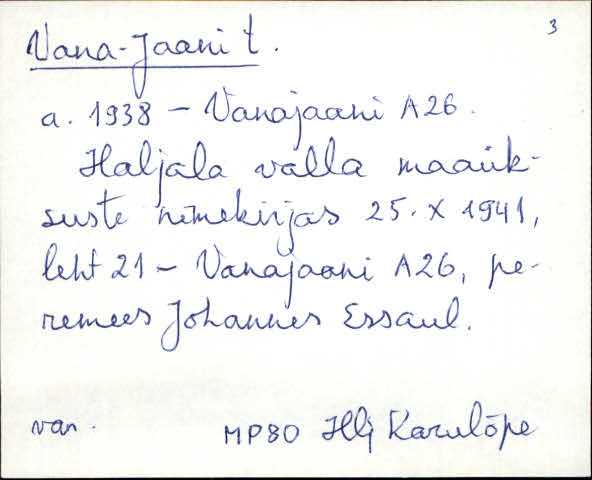 3
Vana-Jaani t.
a. 1938 – Vanajaani A26.
Haljala valla maaük-
suste nimekirjas 25. X 1941,
leht 21 – Vanajaani A26, pe-
remees Johannes Essaul.
van.
MP80 Hlj Karulõpe